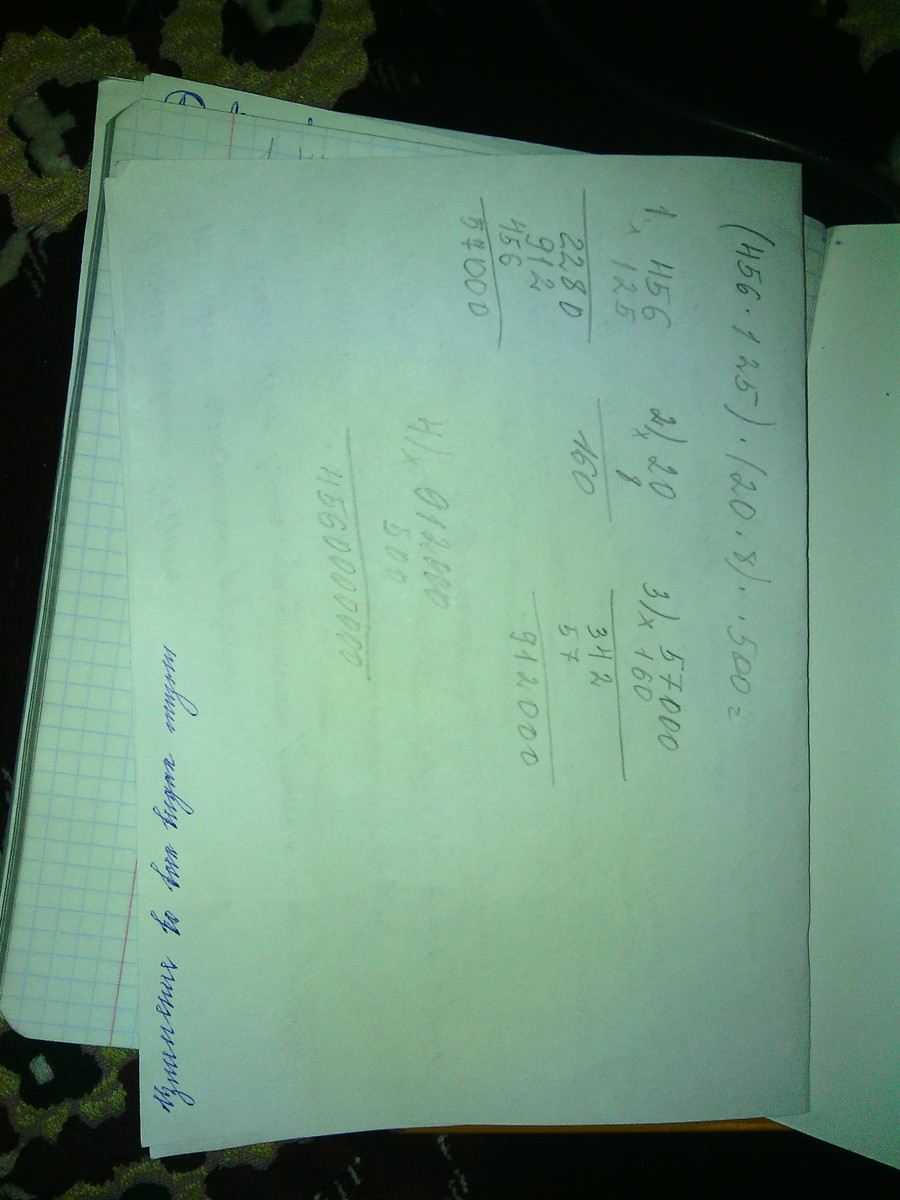 (456·125)·(20·8)·500=
1, x 456
125
2280
912
456
57000
2) x 20
8
160
3) x 57000
160
342
57
912000
4) x 912000
500
456000000
во всех видах